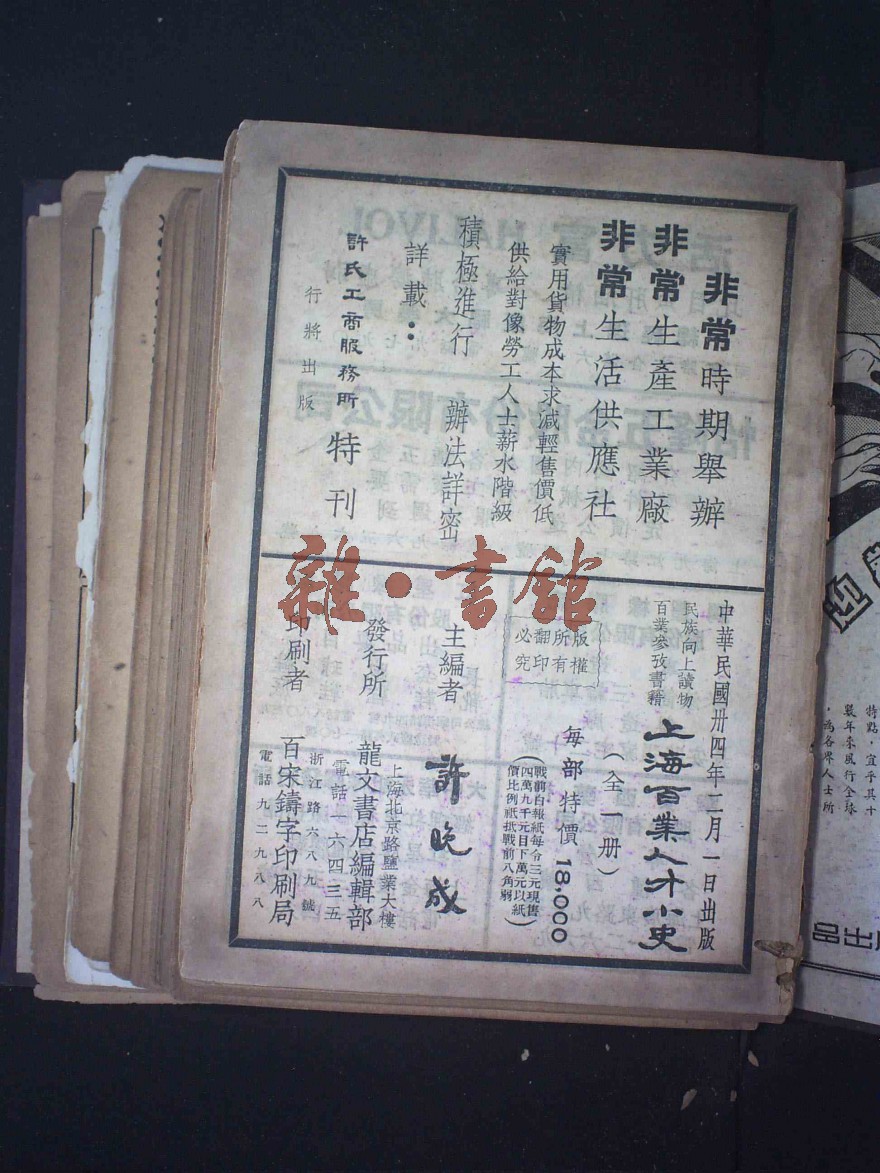 非常時期舉辦
非常生產工業廠
非常生活供應社
實用貨物成本求減輕售價低
供給對像勞工人士薪水階級
積極進行 辦法詳密
詳載：
許氏工商服務所 特刊
行將出版
中華民國卅四年二月一日出版
民族向上讀物
百業參攷書籍
上海百業人才小史
（全一册）
版權
所有
翻印
必究
每部特價 18,000
（戰前白報紙每令三元現售
四萬九千元目下萬元以紙
價比例祇抵戰前八角弱）
主編者 許晚成
發行所 龍文書店編輯部
上海北京路鹽業大樓
電話一六四三五
印刷者 百宋鑄字印刷局
浙江路六八九號
電話九二九八八
雜·書館
特點，宜乎其十
數年來風行全球
，為各界人士所
品出